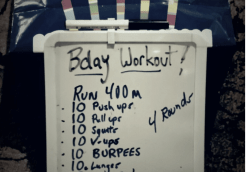 Bday Workout!
RUN 400m
10 Push ups
10 Pull ups
10 Squats
10 V-ups
10 BURPEES
10 Lunges
4 Rounds